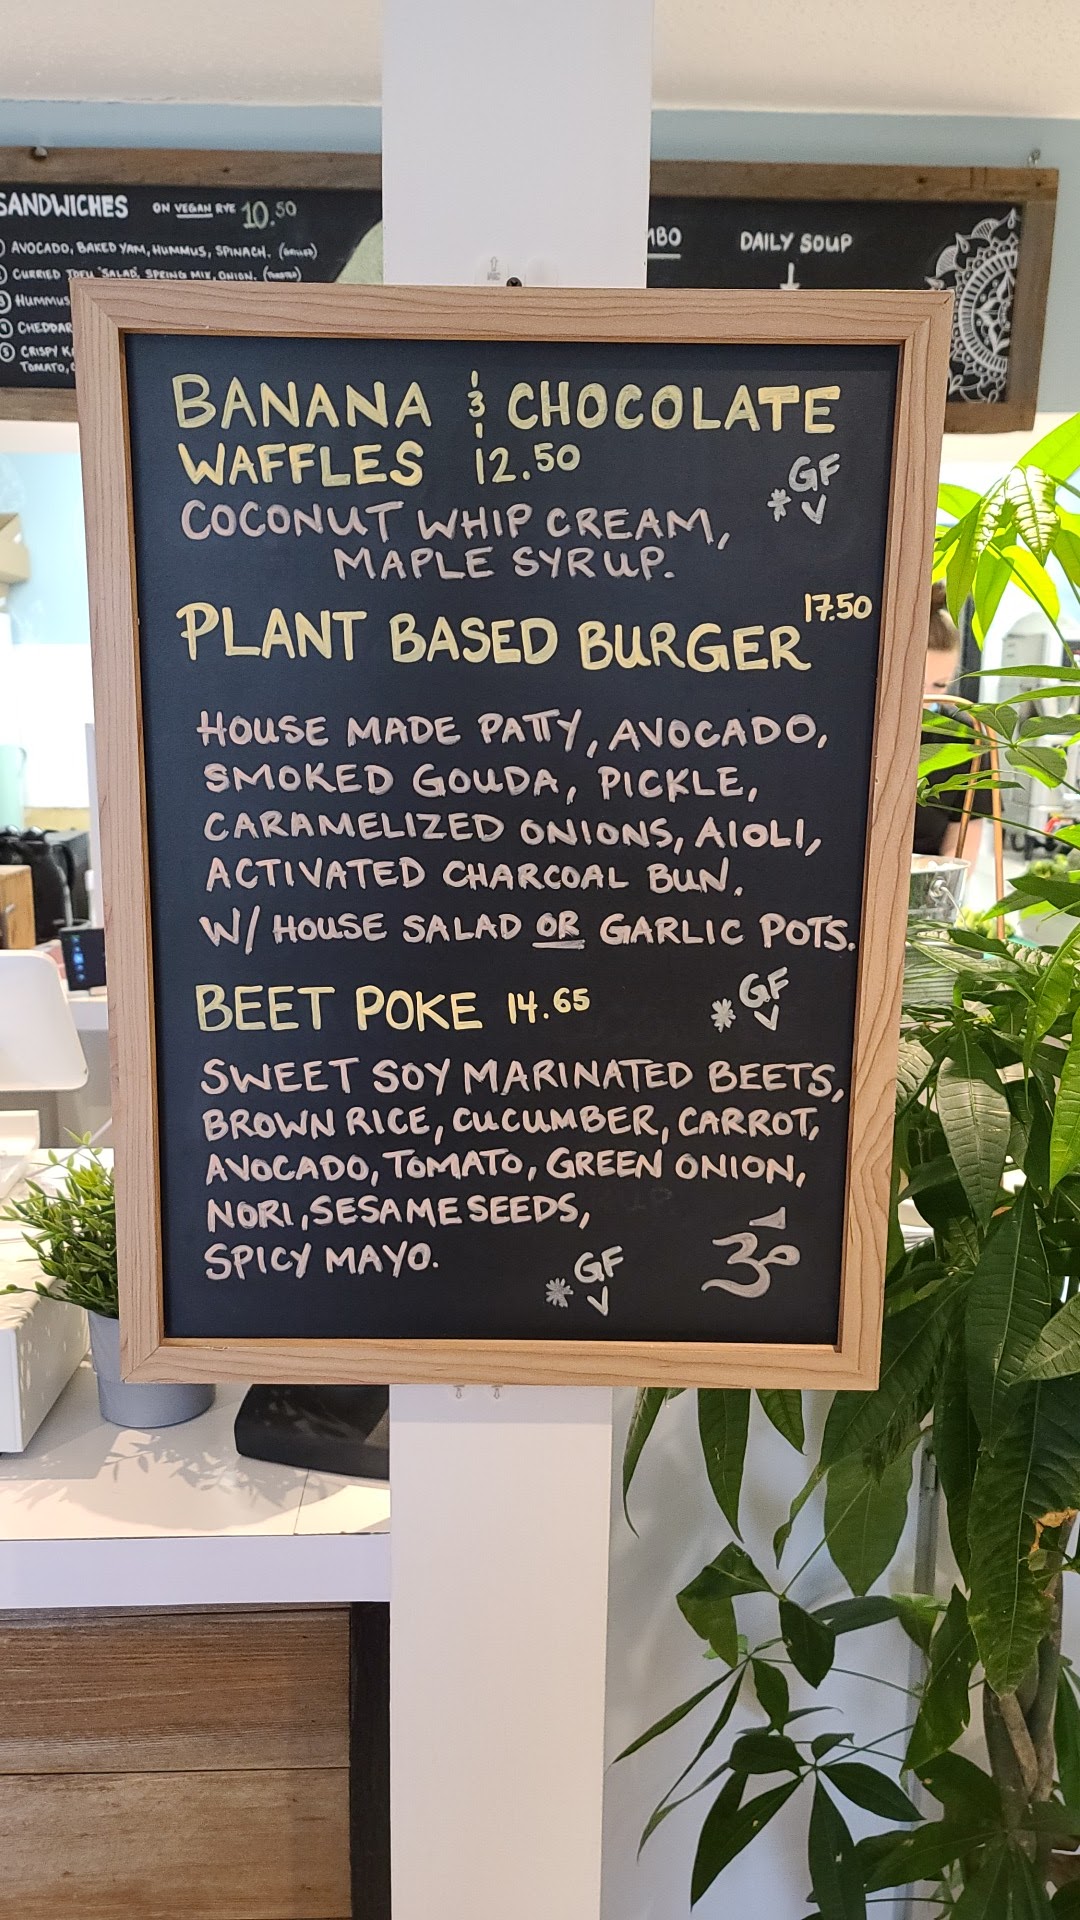 SANDWICHES ON VEGAN RYE 10.50
AVOCADO, BAKED YAM, HUMMUS, SPINACH. (GRILLED)
CURRIED TOFU 'SALAD', SPRING MIX, ONION. (TOASTED)
③ HUMMUS
④ CHEDDAR
⑤ CRISPY
TOMATO,
DAILY SOUP
BANANA & CHOCOLATE
WAFFLES 12.50
GF
* V
COCONUT WHIP CREAM,
MAPLE SYRUP.
PLANT BASED BURGER 17.50
HOUSE MADE PATTY, AVOCADO,
SMOKED GOUDA, PICKLE,
CARAMELIZED ONIONS, AIOLI,
ACTIVATED CHARCOAL BUN.
W/ HOUSE SALAD OR GARLIC POTS.
GF
* V
BEET POKE 14.65
SWEET SOY MARINATED BEETS,
BROWN RICE, CUCUMBER, CARROT,
AVOCADO, TOMATO, GREEN ONION,
NORI, SESAME SEEDS,
SPICY MAYO.
GF
* V
ॐ